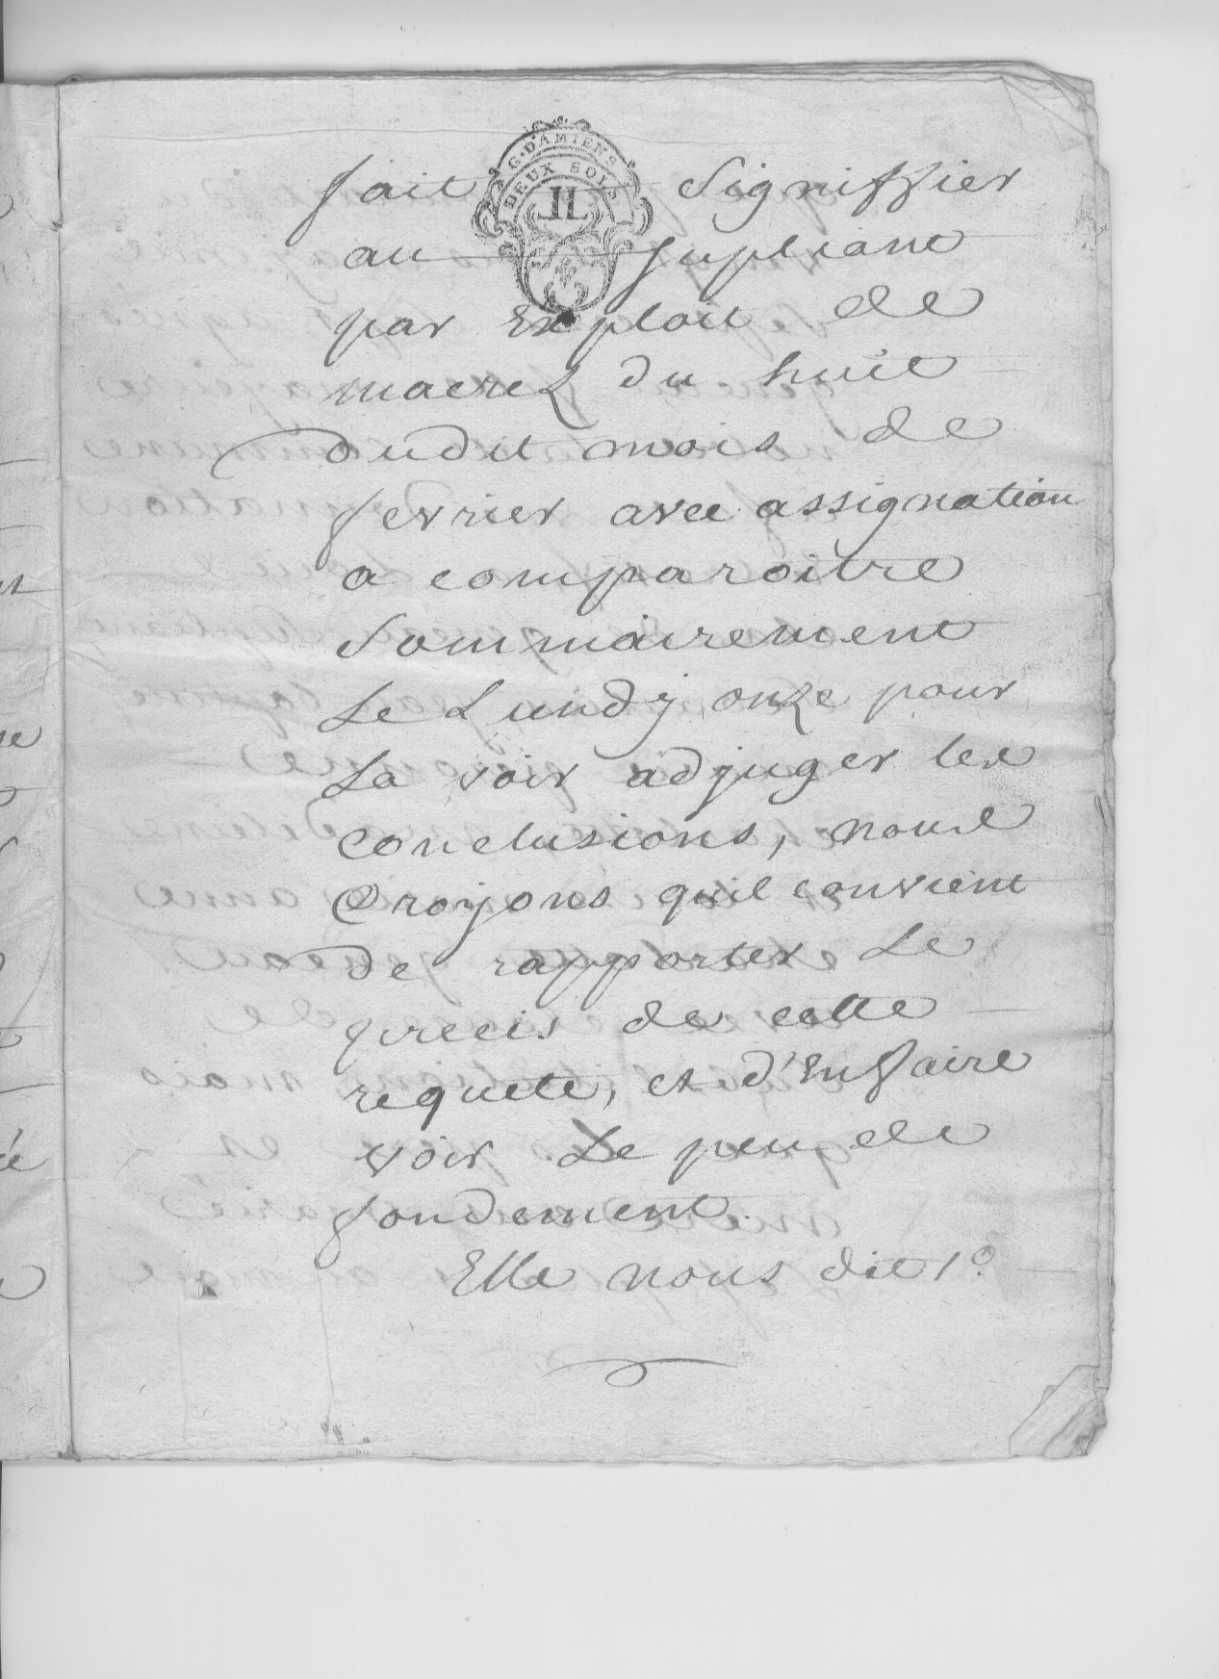 G. D'AMIENS
DEUX SOLS
fait signiffier
au supliant
par Exploit de
macrez du huit
dudit mois de
fevrier avec assignation
a comparoitre
sommairement
Le Lundy onze pour
La voir adjuger les
conclusions, nous
Croyons quil convient
de rapporter Le
precis de cette
requete, et d'En faire
voir Le peu de
fondement.
Elle nous dit 1º